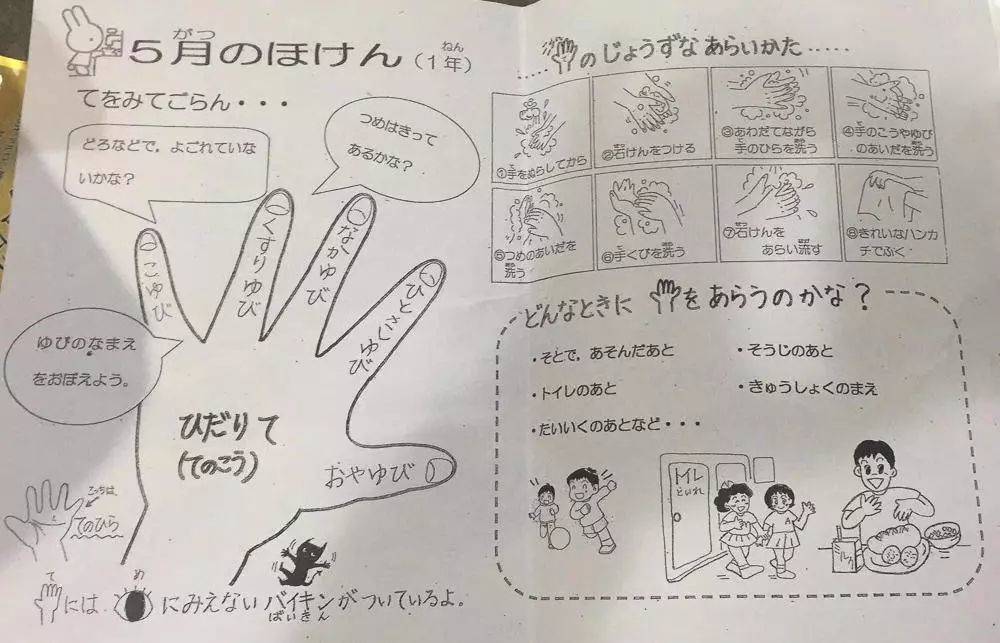 ５月のほけん（１年）
がつ
ねん
てをみてごらん・・・
どろなどで，よごれていな
いかな？
つめはきって
あるかな？
こゆび
くすりゆび
なかゆび
ひとさしゆび
おやゆび
ゆびのなまえ
をおぼえよう。
ひだりて
(てのこう)
こっちは、
てのひら
て
め
には
にみえないバイキンがついているよ。
ばいきん
・・・・のじょうずなあらいかた・・・・・
①手をぬらしてから
て
②石けんをつける
せっ
③あわだてながら
手のひらを洗う
て
あら
④手のこうやゆび
のあいだを洗う
て
あら
⑤つめのあいだを
洗う
あら
⑥手くびを洗う
て
あら
⑦石けんを
あらい流す
せっ
なが
⑧きれいなハンカ
チでふく
どんなときに
をあらうのかな？
・そとで，あそんだあと
・そうじのあと
・トイレのあと
・きゅうしょくのまえ
・たいいくのあとなど・・・
トイレ
といれ